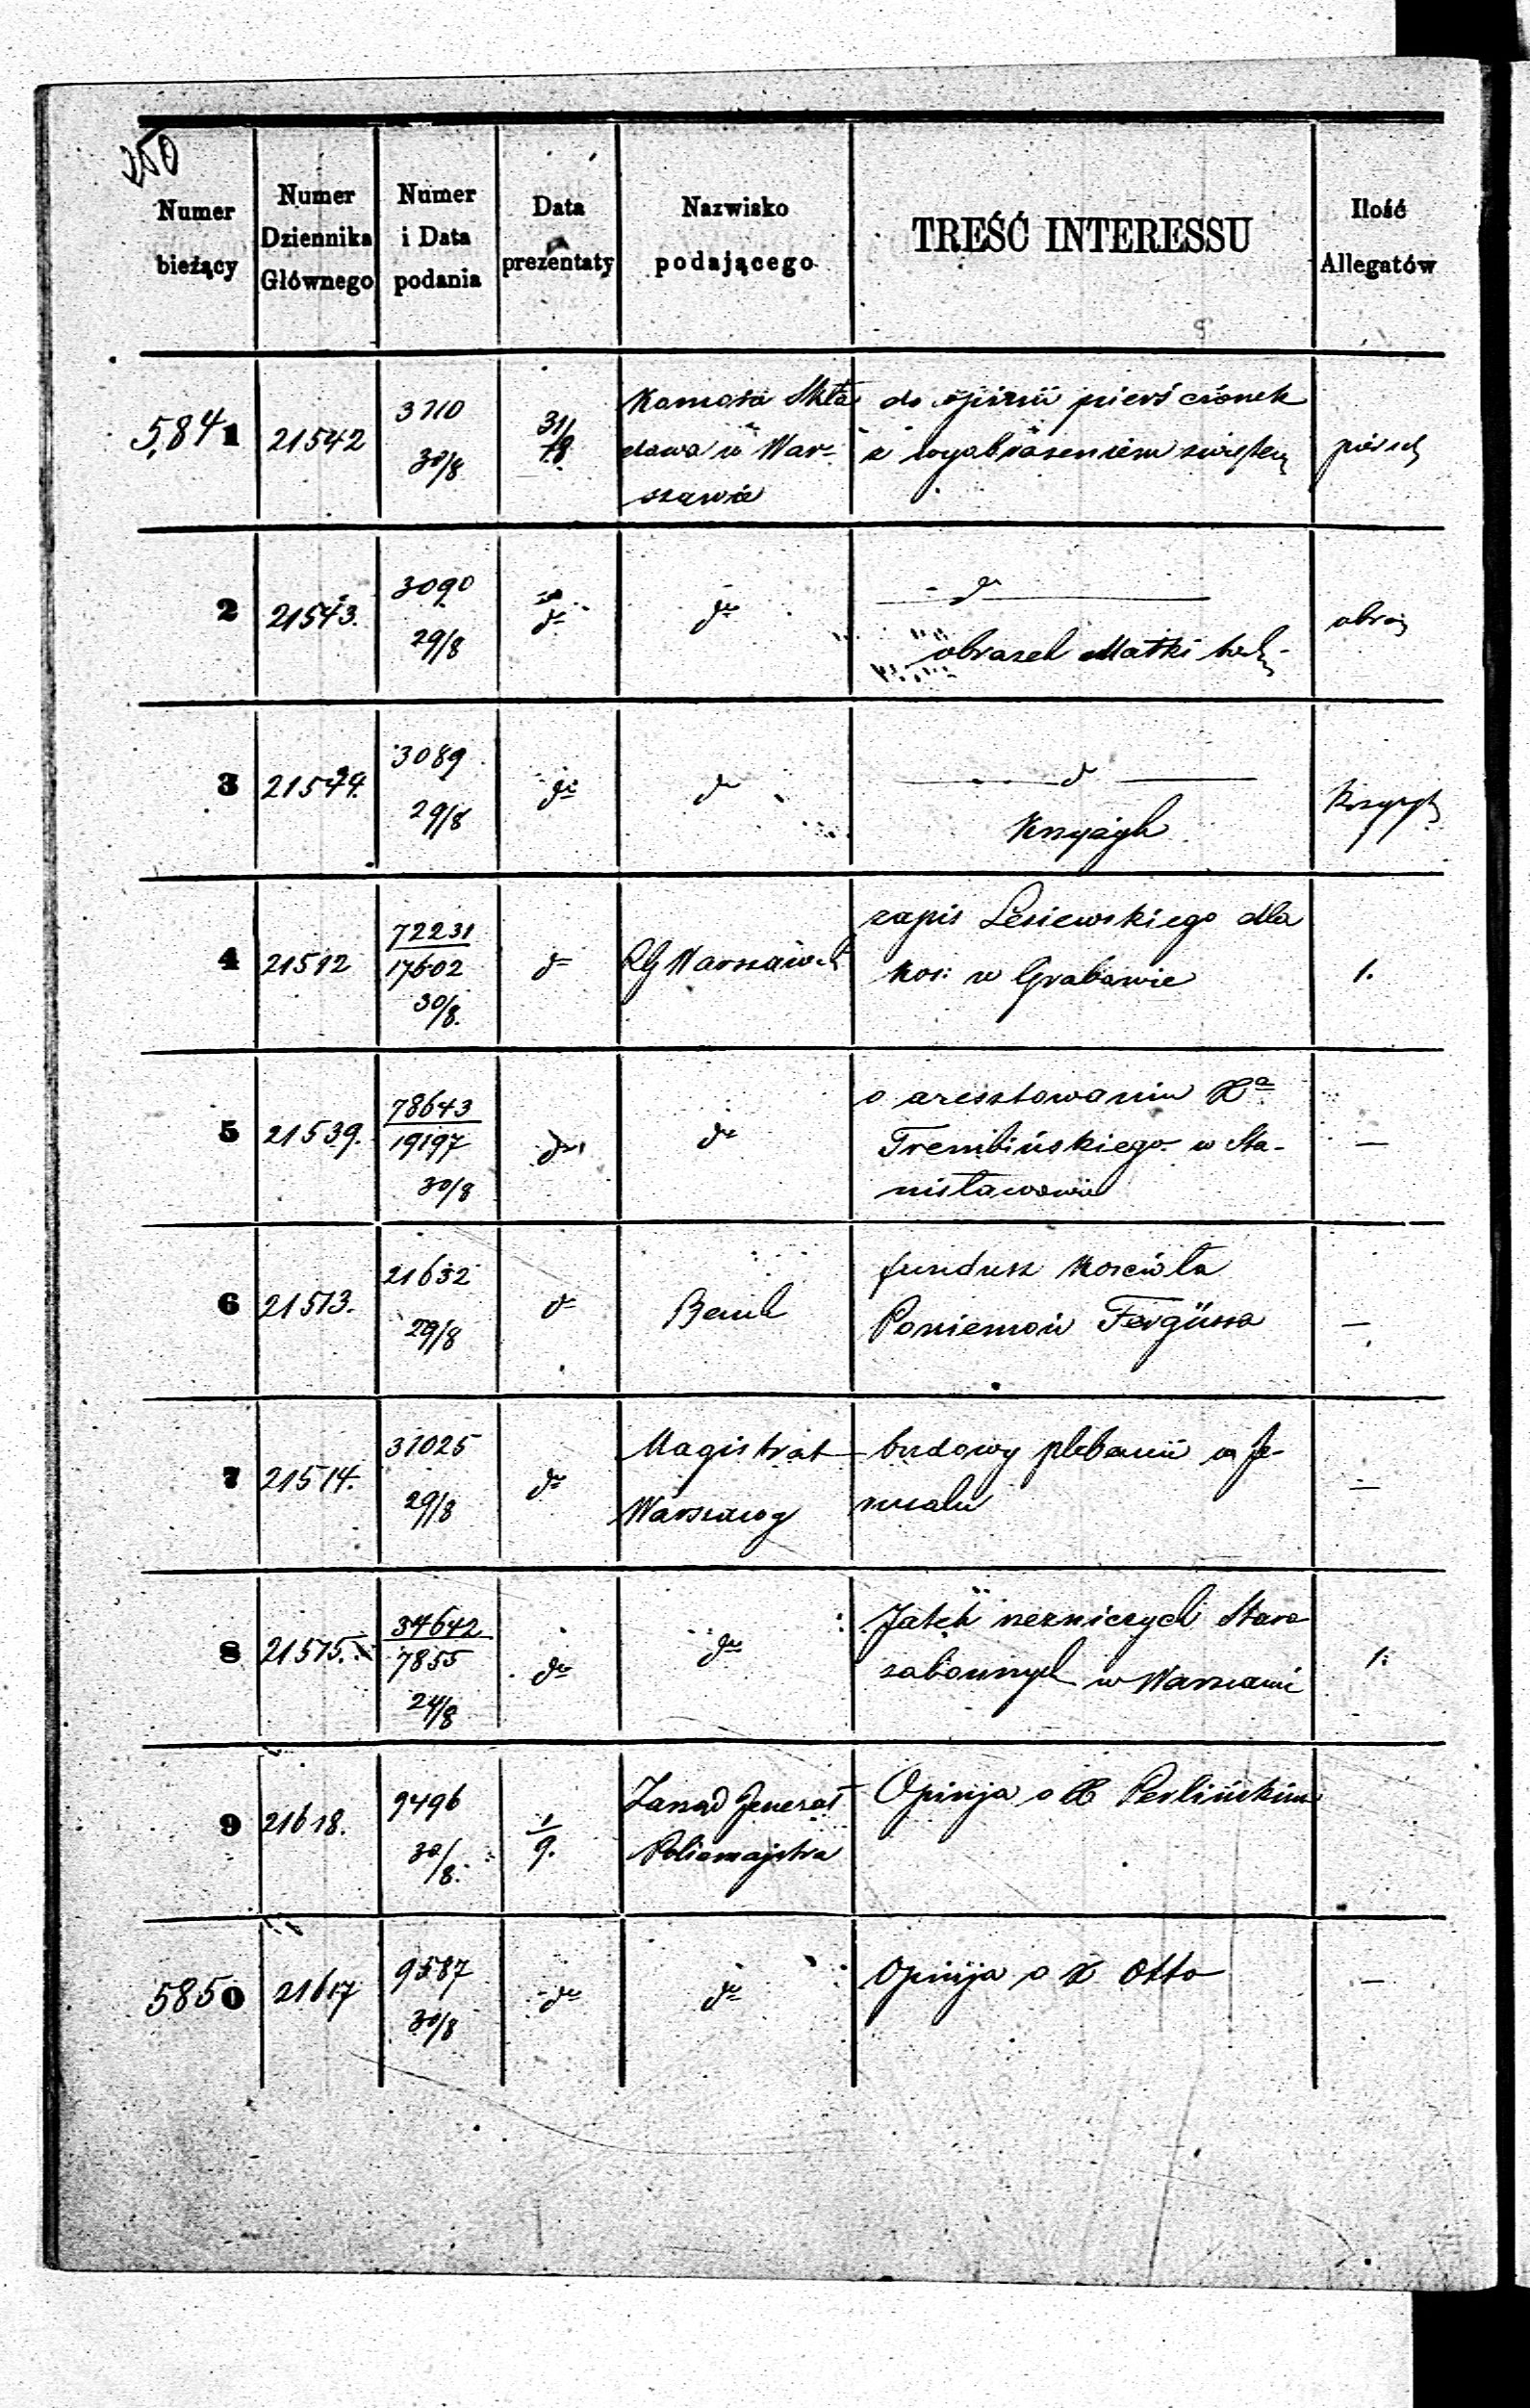 250
Numer bieżący
Numer Dziennika Głównego
Numer i Data podania
Data prezentaty
Nazwisko podającego
TREŚĆ INTERESSU
Ilość Allegatów
5841
21542
3710
30/8
31/8
Komora Skła
dowa w War-
szawie
do opinii pierścionek
z wyobrażeniem
2
21543.
3090
29/8
do
do
do
obrazek Matki
obraz
3
21544.
3089
29/8
do
do
do
Krzyżyk
4
21512
72231
17602
30/8.
do
RG Warszaws
zapis Lesiewskiego dla
Kos: w Grabowie
1.
5
21539.
78643
19197
30/8
do
do
o aresztowaniu Xa
Trembińskiego w Sta-
nisławowie
—
6
21513.
21632
29/8
do
Bank
fundusz Kościoła
Poniemoń Fergüssa
—
7
21514.
31025
29/8
do
Magistrat
Warszawy
budowy plebanii w Je-
ruzalu
—
8
21515.
34642
7855
24/8
do
do
Jatek rzezniczych Staro
zakonnych w Warszawie
1.
9
21618.
9496
30/8.
1/9.
Zarząd Generał
Policmajstra
Opinja o X Perlińskim
5850
21617
9587
30/8
do
do
Opinija o X Otto
—